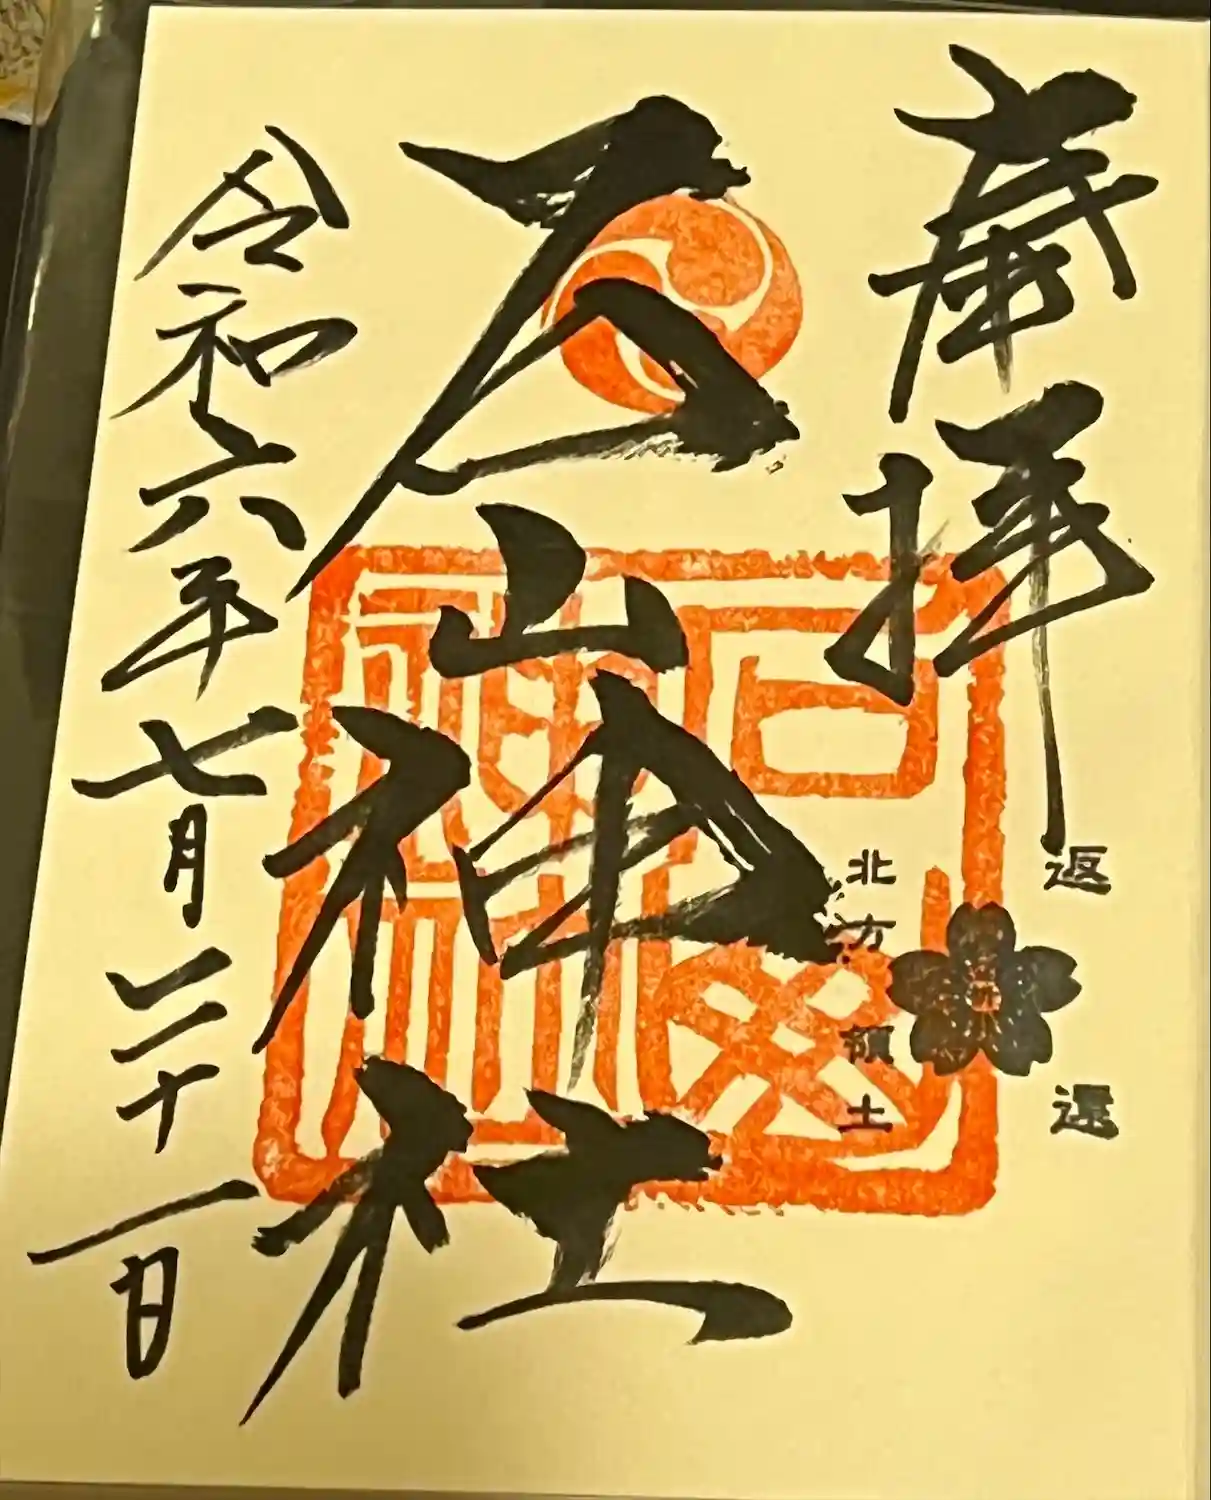 奉拝
返還
北方領土
石山神社
令和六年七月二十一日